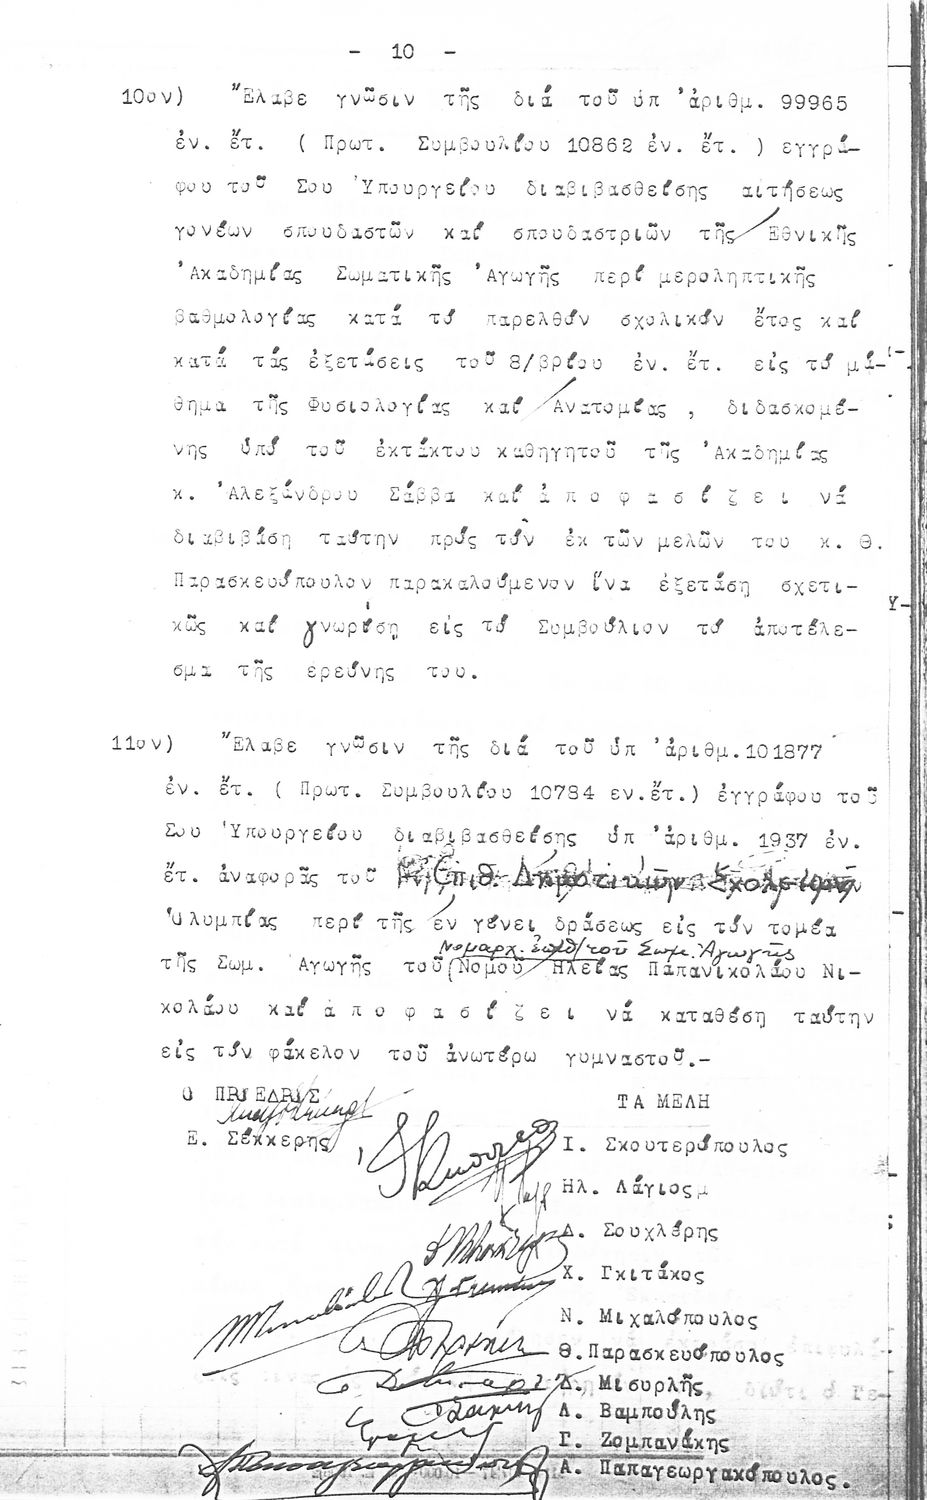 - 10 -
10ον) Ἔλαβε γνῶσιν τῆς διά τοῦ ὑπ' ἀριθμ. 99965
ἐν. ἔτ. ( Πρωτ. Συμβουλίου 10862 ἐν. ἔτ. ) εγγρά-
φου τοῦ Σου Ὑπουργείου διαβιβασθείσης αιτήσεως
γονέων σπουδαστῶν καί σπουδαστριῶν τῆς Ἐθνικῆς
'Ακαδημίας Σωματικῆς 'Αγωγῆς περί μεροληπτικῆς
βαθμολογίας κατά τό παρελθόν σχολικόν ἔτος καί
κατά τάς ἐξετάσεις τοῦ 8/βρίου ἐν. ἔτ. εἰς τό μά-
θημα τῆς Φυσιολογίας καί Ἀνατομίας , διδασκομέ-
νης ὑπό τοῦ ἐκτάκτου καθηγητοῦ τῆς 'Ακαδημίας
κ. 'Αλεξάνδρου Σάββα καί ἀ π ο φ α σ ί ζ ε ι νά
διαβιβάση ταύτην πρός τόν ἐκ τῶν μελῶν του κ. Θ.
Παρασκευόπουλον παρακαλούμενον ἵνα ἐξετάση σχετι-
κῶς καί γνωρίση εἰς τό Συμβούλιον τό ἀποτέλε-
σμα τῆς ερεύνης του.
11ον) Ἔλαβε γνῶσιν τῆς διά τοῦ ὑπ' ἀριθμ.101877
ἐν. ἔτ. ( Πρωτ. Συμβουλίου 10784 εν.ἔτ.) ἐγγράφου τοῦ
Σου Ὑπουργείου διαβιβασθείσης ὑπ' ἀριθμ. 1937 ἐν.
ἔτ. ἀναφορᾶς τοῦ Ἐπιθ. Δημοτικῶν Σχολείων
Ὀλυμπίας περί τῆς ἐν γένει δράσεως εἰς τόν τομέα
Νομαρχ. ἐπιθ/τοῦ Σωμ. Ἀγωγῆς
τῆς Σωμ. Ἀγωγῆς τοῦ Νομοῦ Ἠλείας Παπανικολάου Νι-
κολάου καί ἀ π ο φ α σ ί ζ ε ι νά καταθέση ταύτην
εἰς τόν φάκελον τοῦ ἀνωτέρω γυμναστοῦ.-
Ο ΠΡΟΕΔΡΟΣ
ΤΑ ΜΕΛΗ
Ε. Σέκκερης
Ι. Σκουτερόπουλος
Ηλ. Λάγιος
Δ. Σουχλέρης
Χ. Γκιτάκος
Ν. Μιχαλόπουλος
Θ.Παρασκευόπουλος
Δ. Μισυρλῆς
Λ. Βαμπούλης
Γ. Ζομπανάκης
Α. Παπαγεωργακόπουλος.